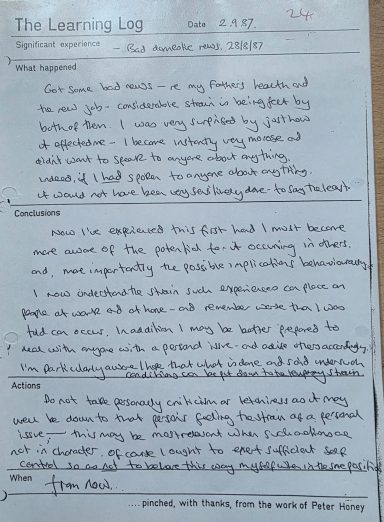 24
The Learning Log Date 2.9.87.
Significant experience - Bad domestic news, 28/8/87
What happened
Got some bad news - re my Fathers health and
the new job - considerable strain is being felt by
both of them. I was very surprised by just how
it affected me - I became instantly very morose and
didn't want to speak to anyone about anything.
indeed, if I had spoken to anyone about anything,
it would not have been very sensitively done - to say the least.
Conclusions
Now I've experienced this first hand I must become
more aware of the potential for it occuring in others.
and, more importantly the possible implications behaviourally.
I now understand the strain such experiences can place on
people at work and at home - and remember worse than I was
told can occur. In addition I may be better prepared to
deal with anyone with a personal issue - and advise others accordingly.
I'm particularly aware I hope that what is done and said under such
conditions can be put down to temporary strain.
Actions
Do not take personally criticism or tetchiness as it may
well be down to that person feeling the strain of a personal
issue - this may be most relevant when such actions are
not in character. Of course I ought to exert sufficient self
control so as not to behave this way myself when in the same position
When from now..
....pinched, with thanks, from the work of Peter Honey